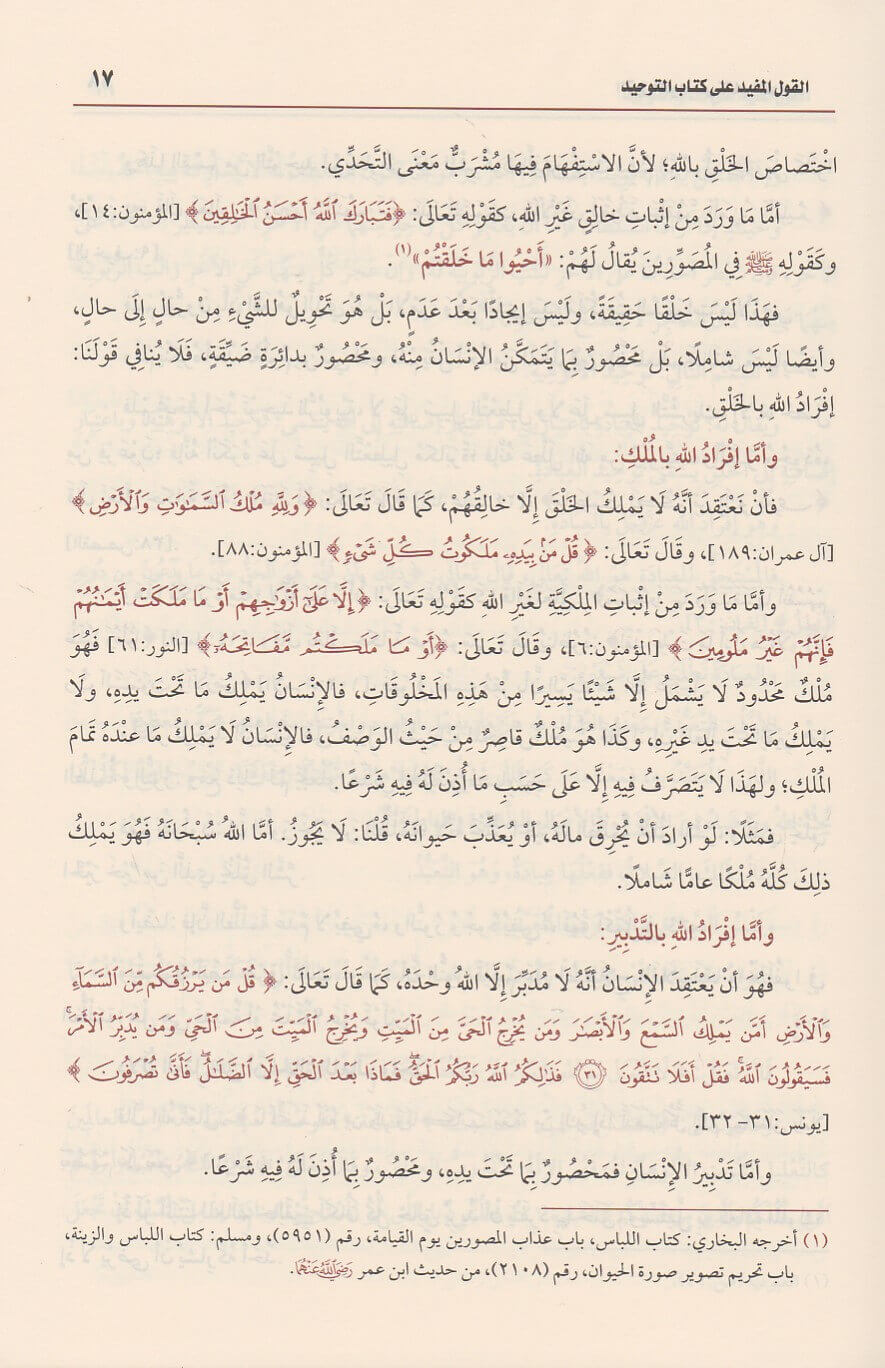 القول المفيد على كتاب التوحيد
١٧
اخْتِصاصَ الخَلْقِ باللهِ؛ لأنَّ الاسْتِفْهَامَ فِيهَا مُشْرَبٌ مَعْنَى التَّحَدِّي.
أمَّا مَا وَرَدَ مِنْ إِثْباتِ خالِقٍ غَيْرِ اللهِ، كقَوْلِهِ تَعَالَى: ﴿فَتَبَارَكَ ٱللَّهُ أَحْسَنُ ٱلْخَٰلِقِينَ﴾ [المؤمنون:١٤]،
وكَقَوْلِهِ ﷺ فِي المُصَوِّرِينَ يُقالُ لَهُمْ: «أَحْيُوا مَا خَلَقْتُمْ»(١).
فهَذَا لَيْسَ خَلْقًا حَقِيقَةً، ولَيْسَ إيجادًا بَعْدَ عَدَمٍ، بَلْ هُوَ تَحْوِيلٌ للشَّيْءِ مِنْ حالٍ إِلَى حالٍ،
وأيضًا لَيْسَ شامِلًا، بَلْ مَحْصُورٌ بِمَا يَتَمَكَّنُ الإنْسَانُ مِنْهُ، ومَحْصُورٌ بدائِرَةٍ ضَيِّقَةٍ، فَلَا يُنافِي قَوْلَنَا:
إفْرَادُ اللهِ بالخَلْقِ.
وأمَّا إفْرَادُ اللهِ بالمُلْكِ:
فأنْ نَعْتَقِدَ أنَّهُ لَا يَمْلِكُ الخَلْقَ إلَّا خالِقُهُمْ، كَمَا قَالَ تَعَالَى: ﴿وَلِلَّهِ مُلْكُ ٱلسَّمَٰوَٰتِ وَٱلْأَرْضِ﴾
[آل عمران:١٨٩]، وقَالَ تَعَالَى: ﴿قُلْ مَنۢ بِيَدِهِۦ مَلَكُوتُ كُلِّ شَىْءٍ﴾ [المؤمنون:٨٨].
وأمَّا مَا وَرَدَ مِنْ إثْباتِ المِلْكِيَّةِ لغَيْرِ اللهِ كقَوْلِهِ تَعَالَى: ﴿إِلَّا عَلَىٰٓ أَزْوَٰجِهِمْ أَوْ مَا مَلَكَتْ أَيْمَٰنُهُمْ
فَإِنَّهُمْ غَيْرُ مَلُومِينَ﴾ [المؤمنون:٦]، وقَالَ تَعَالَى: ﴿أَوْ مَا مَلَكْتُم مَّفَاتِحَهُۥٓ﴾ [النور:٦١] فَهُوَ
مُلْكٌ مَحْدُودٌ لَا يَشْمَلُ إلَّا شَيْئًا يَسِيرًا مِنْ هَذِهِ المَخْلُوقَاتِ، فالإنْسَانُ يَمْلِكُ مَا تَحْتَ يدِهِ، ولَا
يَمْلِكُ مَا تَحْتَ يدِ غَيْرِهِ، وكَذَا هُوَ مُلْكٌ قاصِرٌ مِنْ حَيْثُ الوَصْفُ، فالإنْسَانُ لَا يَمْلِكُ مَا عنْدَهُ تَمَامَ
المُلْكِ؛ ولهَذَا لَا يَتَصَرَّفُ فِيهِ إلَّا عَلَى حَسَبِ مَا أُذِنَ لَهُ فِيهِ شَرْعًا.
فمَثَلًا: لَوْ أرادَ أنْ يُحْرِقَ مالَهُ، أوْ يُعَذِّبَ حَيوانَهُ، قُلْنَا: لَا يَجُوزُ. أمَّا اللهُ سُبْحَانَهُ فَهُوَ يَمْلِكُ
ذلِكَ كُلَّهُ مُلْكًا عامًّا شَامِلًا.
وأمَّا إفْرَادُ اللهِ بالتَّدْبِيرِ:
فهُوَ أنْ يَعْتَقِدَ الإنْسَانُ أنَّهُ لَا مُدَبِّرَ إلَّا اللهُ وحْدَهُ، كَمَا قَالَ تَعَالَى: ﴿قُلْ مَن يَرْزُقُكُم مِّنَ ٱلسَّمَآءِ
وَٱلْأَرْضِ أَمَّن يَمْلِكُ ٱلسَّمْعَ وَٱلْأَبْصَٰرَ وَمَن يُخْرِجُ ٱلْحَىَّ مِنَ ٱلْمَيِّتِ وَيُخْرِجُ ٱلْمَيِّتَ مِنَ ٱلْحَىِّ وَمَن يُدَبِّرُ ٱلْأَمْرَ ۚ
فَسَيَقُولُونَ ٱللَّهُ ۚ فَقُلْ أَفَلَا تَتَّقُونَ ٣١ فَذَٰلِكُمُ ٱللَّهُ رَبُّكُمُ ٱلْحَقُّ ۖ فَمَاذَا بَعْدَ ٱلْحَقِّ إِلَّا ٱلضَّلَٰلُ ۖ فَأَنَّىٰ تُصْرَفُونَ﴾
[يونس:٣١-٣٢].
وأمَّا تَدْبِيرُ الإنْسَانِ فمَحْصُورٌ بِمَا تَحْتَ يدِهِ، ومَحْصُورٌ بِمَا أُذِنَ لَهُ فِيهِ شَرْعًا.
(١) أخرجه البخاري: كتاب اللباس، باب عذاب المصورين يوم القيامة، رقم (٥٩٥١)، ومسلم: كتاب اللباس والزينة،
باب تحريم تصوير صورة الحيوان، رقم (٢١٠٨)، من حديث ابن عمر رَضِيَاللَّهُعَنْهُمَا.